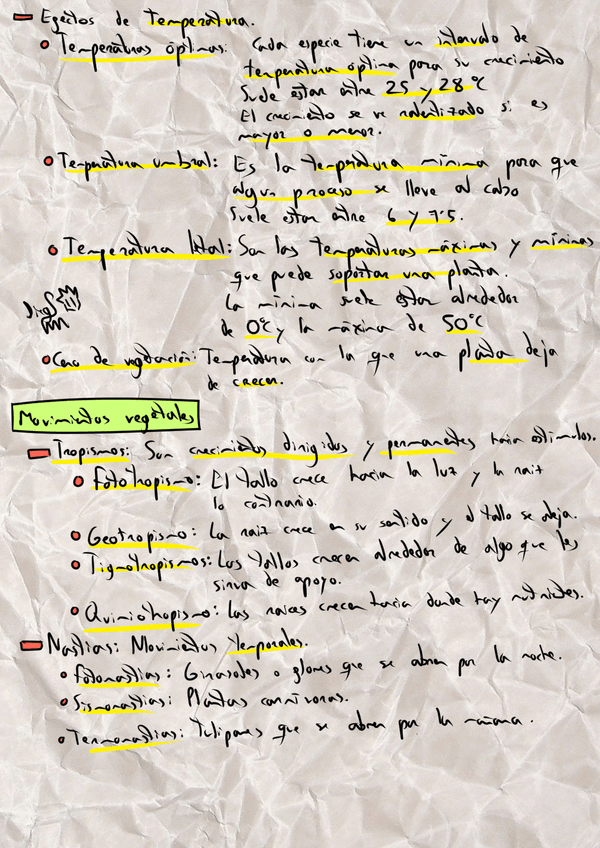 - Efectos de Temperatura.
• Temperaturas óptimas: Cada especie tiene un intervalo de
temperatura óptima para su crecimiento
Suele estar entre 25 y 28 ºC
El crecimiento se ve ralentizado si es
mayor o menor.
• Temperatura umbral: Es la temperatura mínima para que
algun proceso se lleve al cabo
Suele estar entre 6 y 7'5.
• Temperatura letal: Son las temperaturas máximas y mínimas
que puede soportar una planta.
La mínima suele estar alrededor
de 0ºC y la máxima de 50ºC
• Cero de vegetación: Temperatura con la que una planta deja
de crecer.
Movimientos vegetales
- Tropismos: Son crecimientos dirigidos y permanentes hacia estimulos.
• Fototropismo: El tallo crece hacia la luz y la raiz
lo contrario.
• Geotropismo: La raiz crece en su sentido y el tallo se aleja.
• Tigmotropismos: Los tallos crecen alrededor de algo que les
sirva de apoyo.
• Quimiotropismo: Las raices crecen hacia donde hay nutrientes.
- Nastias: Movimientos temporales.
• Fotonastias: Girasoles o flores que se abren por la noche.
• Sismonastias: Plantas carnívoras.
• Termonastias: Tulipanes que se abren por la mañana.